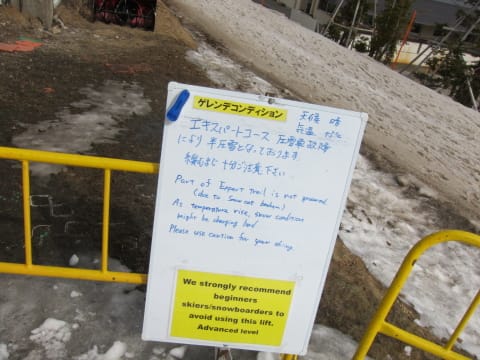 ゲレンデコンディション
天候 晴
気温 +5℃
エキスパートコース 圧雪車故障
により 半圧雪となっております
十分ご注意下さい
Part of Expert trail is not groomed
(due to Snow cat broken)
As temperature rise, snow condition
might be changing hard
Please use caution for your skiing.
We strongly recommend
beginners
skiers/snowboarders to
avoid using this lift.
Advanced level